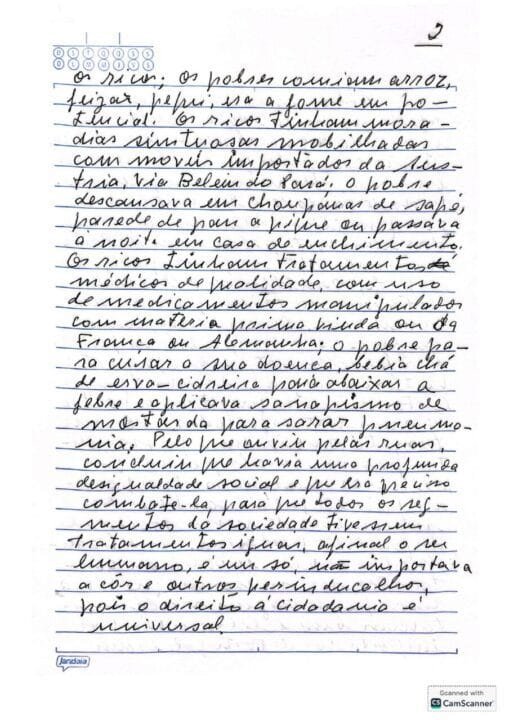 2
D S T Q Q S S
D L M M J V S
os ricos; os pobres comiam arroz,
feijão, pequi, era a fome em po-
tencial. Os ricos tinham mora-
dias sintuosas mobilhadas
com moveis importados da Áus-
tria, via Belem do Pará; o pobre
descansava em choupanas de sapé,
parede de pau a pique ou passava
à noite em casa de enchimento.
Os ricos tinham tratamentos
médicos de qualidade, com uso
de medicamentos manipulados
com materia prima vinda ou da
França ou Alemanha; o pobre pa-
ra curar a sua doença, bebia chá
de erva-cidreira para abaixar a
febre e aplicava sanapismo de
mostarda para sarar pneumo-
nia. Pelo que ouvia pelas ruas,
concluia que havia uma profunda
desigualdade social e que era preciso
combate-la, para que todos os seg-
mentos da sociedade tivessem
tratamentos iguais, afinal o ser
humano, é um só, não importava
a côr e outros
pois o direito á cidadania é
universal.
jandaia
Scanned with
CS CamScanner